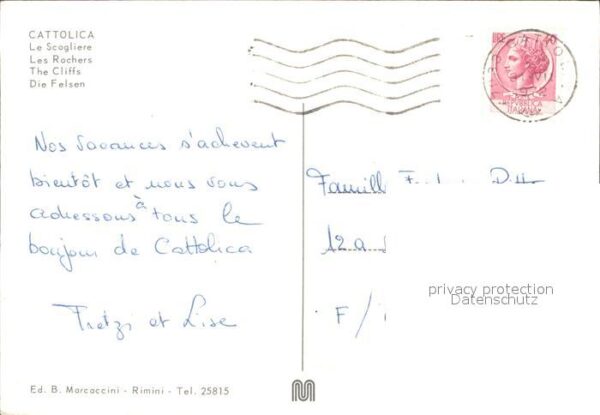 CATTOLICA
Le Scogliere
Les Rochers
The Cliffs
Die Felsen
Nos vacances s'achevent
bientôt et nous vous
adressons à tous le
bonjour de Cattolica
Fretzi et Lise
Famille
12 a
F/
privacy protection
Datenschutz
Ed. B. Marcaccini - Rimini - Tel. 25815